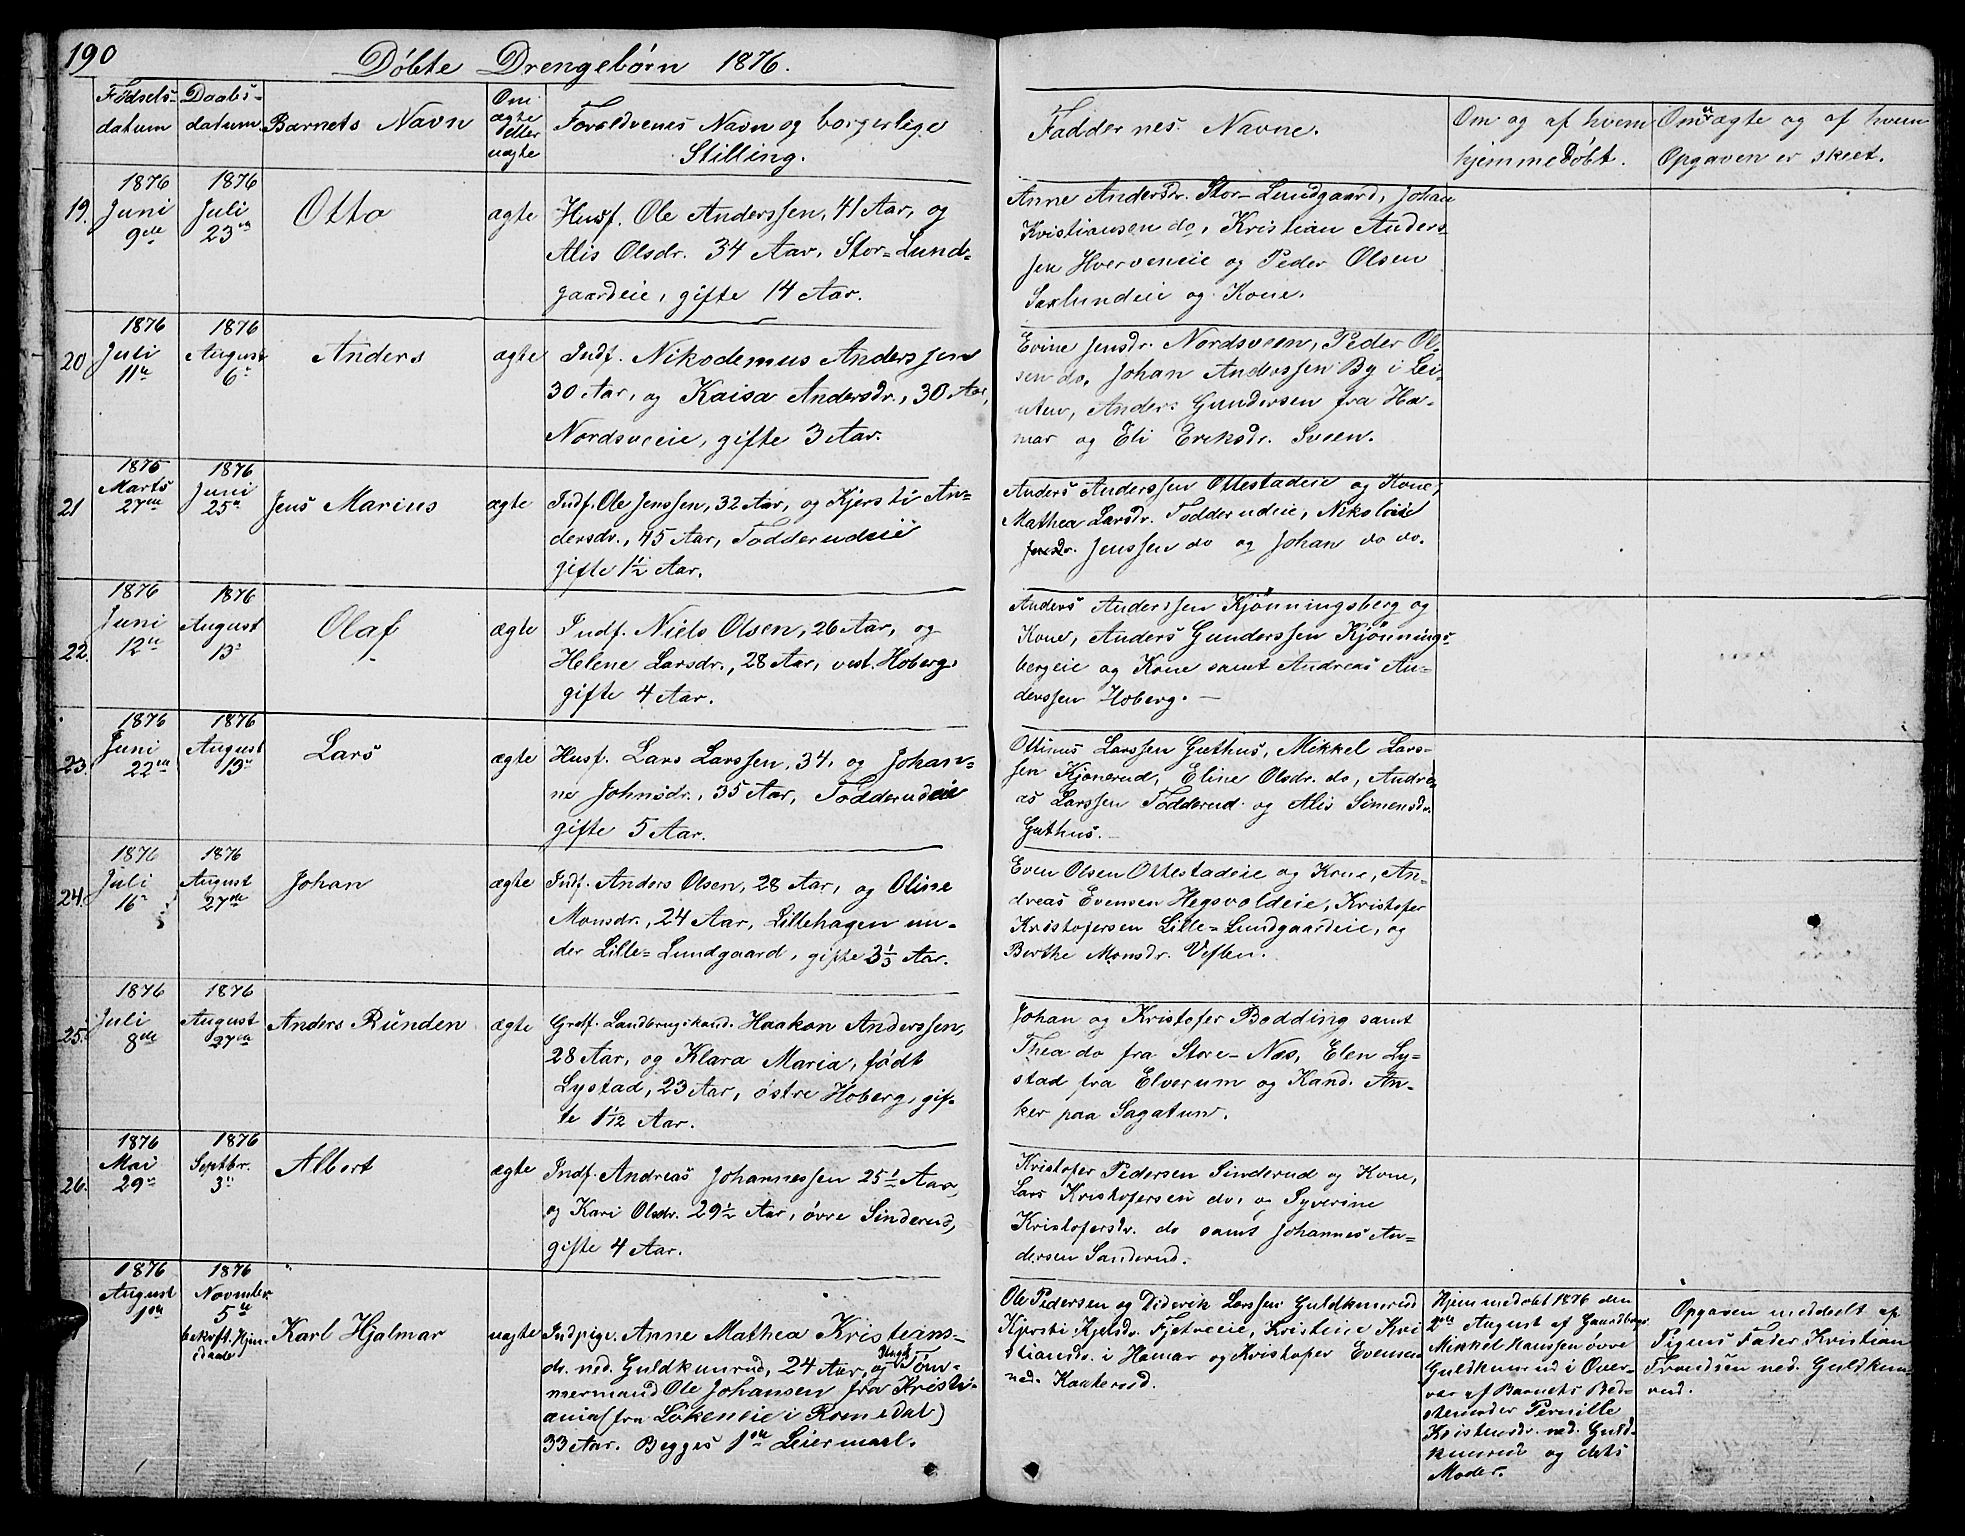 190
Døbte Drengebørn 1876.
Fødsels-datum
Daabs-datum
Barnets Navn
Om ægte eller uægte
Forældrenes Navn og borgerlige Stilling.
Faddernes Navne.
Om og af hvem hjemmedøbt.
Om uægte og af hvem Opgaven er skeet.
19.
1876 Juni 9de
1876 Juli 23de
Otto
ægte
Husf. Ole Anderssen, 41 Aar, og
Alis Olsdr. 34 Aar, Stor-Lund-
gaardeie, gifte 14 Aar.
Anne Andersdr. Stor-Lundgaard, Johan
Kristiansen do, Kristian Anders-
sen Hverveneie og Peder Olsen
Saxlundeie og Kone.
20
1876 Juli 11te
1876 August 6te
Anders
ægte
Indf. Nikodemus Anderssen
30 Aar, og Kaisa Andersdr., 30 Aar,
Nordsveeie, gifte 3 Aar.
Evine Jensdr. Nordsveen, Peder Ol-
sen do, Johan Anderssen By i Lei-
uten, Anders Gundersen fra Ha-
mar og Eli Eriksdr. Sveen.
21
1876 Marts 27de
1876 Juni 25de
Jens Marius
ægte
Indf. Ole Jenssen, 32 Aar, og Kjersti An-
dersdr., 45 Aar, Todderudeie
gifte 1½ Aar.
Anders Anderssen Ottestadeie og Kone,
Mathea Larsdr. Todderudeie, Nikolai
Jenssen do og Johan do do.
22.
1876 Juni 12te
1876 August 13de
Olaf
ægte
Indf. Niels Olsen, 26 Aar, og
Helene Larsdr., 28 Aar, vest. Hoberg,
gifte 4 Aar.
Anders Anderssen Kjønningsberg og
Kone, Anders Gunderssen Kjønnings-
bergeie og Kone samt Andreas An-
derssen Hoberg. —
23.
1876 Juni 22de
1876 August 13de
Lars
ægte
Husf. Lars Larssen, 34, og Johan-
ne Johnsdr., 35 Aar, Todderudeie
gifte 5 Aar.
Ottinus Larssen Gæthus, Mikkel Lars-
sen Kjonerud, Eline Olsdr. do, Andre-
as Larssen Todderud og Alis Simensdr.
Gæthus.
24.
1876 Juli 16de
1876 August 27de
Johan
ægte
Indf. Anders Olsen, 28 Aar, og Oline
Monsdr., 24 Aar, Lillehagen un-
der Lille-Lundgaard, gifte 3⅓ Aar.
Even Olsen Ottestadeie og Kone, An-
dreas Evensen Hegsvoldeie, Kristofer
Kristofersen Lille-Lundgaardeie, og
Berthe Monsdr. Veflen.
25.
1876 Juli 8de
1876 August 27de
Anders Ründen
ægte
Grdf. Landbrugskand. Haakon Anderssen,
28 Aar, og Klara Maria, født
Lystad, 23 Aar, østre Hoberg, gif-
te 1½ Aar.
Johan og Kristofer Bodding samt
Thea do fra Store-Næs, Elen Ly-
stad fra Elverum og Kand. An-
ker paa Sagatun.
26.
1876 Mai 29de
1876 Septbr. 3die
Albert
ægte
Indf. Andreas Johannessen 25½ Aar,
og Kari Olsdr. 29½ Aar, øvre Sinderud,
gifte 4 Aar.
Kristofer Pedersen Sinderud og Kone,
Lars Kristofersen do, og Syverine
Kristofersdr. do samt Johannes An-
dersen Sanderud.
1876 August 1ste
1876 November 5te bekræft. Hjemmedaab
Karl Hjalmar
uægte
Indpige Anne Mathea Kristians-
dr. ned. Guldkunrud, 24 Aar, og Ungk. Tøm-
mermand Ole Johansen fra Kristi-
ania (fra Løkeneie i Romedal)
33 Aar. Begges 1ste Leiermaal.
Ole Pedersen og Diderik Larssen Guldkunrud
Kjersti Kjelsdr. Fjetreeie, Kristine Kri-
stiansdr. i Hamar og Kristofer Evensen
ned. Kaakerud.
Hjemmedøbt 1876 den
2den August af Gaardbrger
Mikkel Hanssen øvre
Guldkunrud i Over-
vær af Barnets Bed-
stemoder Pernille
Kristensdr. ned. Guld-
kunrud og dets
Moder.
Opgaven meddelt af
Pigens Fader Kristian
Trondsen ned. Guldkun-
rud.